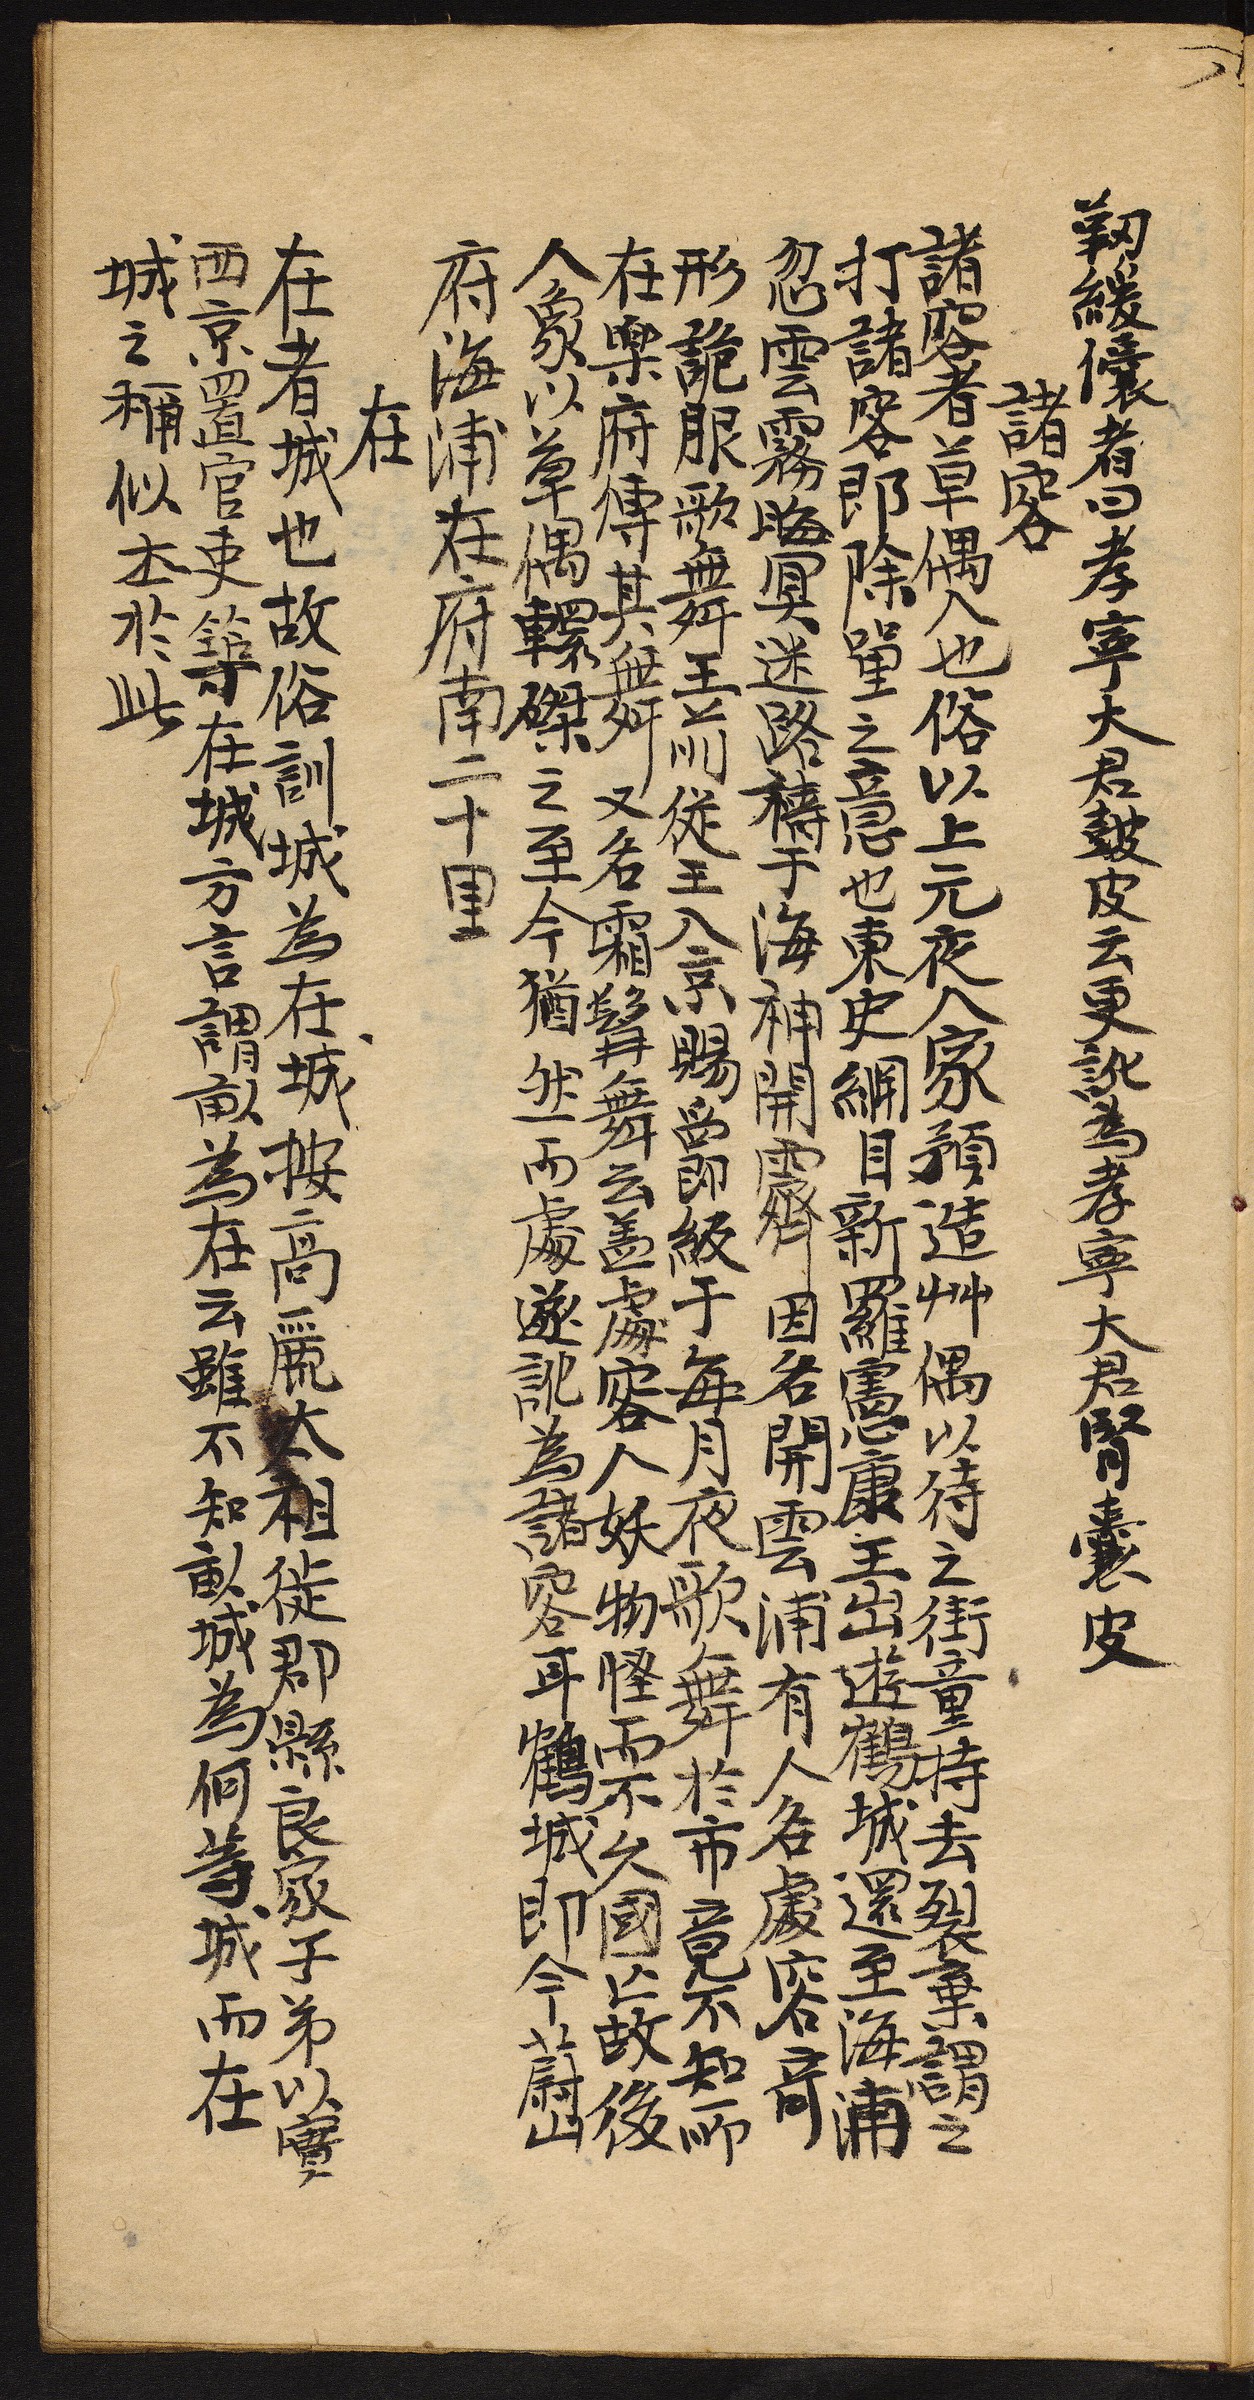 靭緩儾者曰孝寧大君皷皮云更訛為孝寧大君腎囊皮
諸容
諸容者草偶人也俗以上元夜人家預造艸偶以待之街童持去裂棄謂之
打諸容即除罣之意也東史綱目新羅憲康王出遊鶴城還至海浦
忽雲霧晦冥迷路禱于海神開霽因名開雲浦有人名處容奇
形詭服歌舞王前従王入京賜爵級于每月夜歌舞於市竟不知所
在樂府傳其舞又名霜髯舞云盖處容人妖物怪而不久國亡故後
人象以草偶轘磔之至今猶然而處遂訛為諸容耳鶴城即今蔚山
府海浦在府南二十里
在
在者城也故俗訓城為在城按高麗太祖徙郡縣良家子弟以實
西京置官吏築在城方言謂畝為在云雖不知畝城為何等城而在
城之稱似本於此